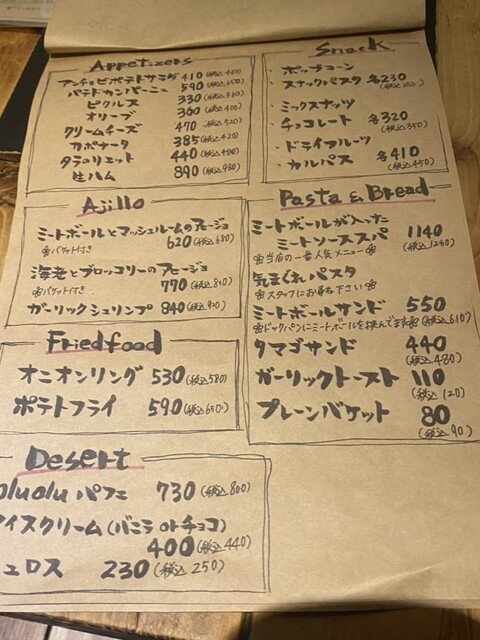 Appetizers
アンチョビポテトサラダ 410 (税込450)
パテドカンパーニュ 590 (税込650)
ピクルス 330 (税込360)
オリーブ 360 (税込400)
クリームチーズ 470 (税込520)
カポナータ 385 (税込420)
タラのリエット 440 (税込480)
生ハム 890 (税込980)
Snack
・ポップコーン
・スナックパスタ 各230
(税込250)
・ミックスナッツ
・チョコレート 各320
(税込350)
・ドライフルーツ
・カルパス 各410
(税込450)
Ajillo
ミートボールとマッシュルームのアヒージョ
※バケット付き 620 (税込680)
海老とブロッコリーのアヒージョ
※バケット付き 770 (税込840)
ガーリックシュリンプ 840 (税込920)
Pasta & Bread
ミートボールが入った
ミートソーススパ 1140
※当店の一番人気メニュー※ (税込1250)
気まぐれパスタ
※スタッフにお尋ね下さい※
ミートボールサンド 550
※ビックパンにミートボールを挟んでます※ (税込610)
タマゴサンド 440
(税込480)
ガーリックトースト 110
(税込120)
プレーンバケット 80
(税込90)
Friedfood
オニオンリング 530 (税込580)
ポテトフライ 590 (税込650)
Desert
oluolu パフェ 730 (税込800)
アイスクリーム (バニラ orチョコ)
400 (税込440)
ュロス 230 (税込250)